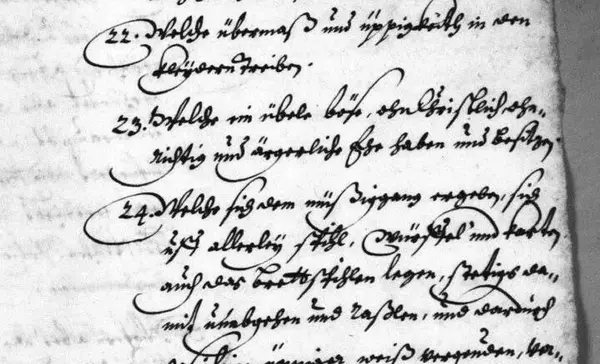 22. Welche übermaß und üppigkeith in den
kleÿdern treiben.
23. Welche ein übele böse, ohn Christlich, ohn=
richtig und ärgerliche Ehe haben und besitzen.
24. Welche sich dem müßiggang ergeben, sich
uff allerleÿ spihl, würffel und karten
auch das brettspihlen legen, stetigs da=
mit umbgehen und raßlen, und dardurch
weiß vergeuden,